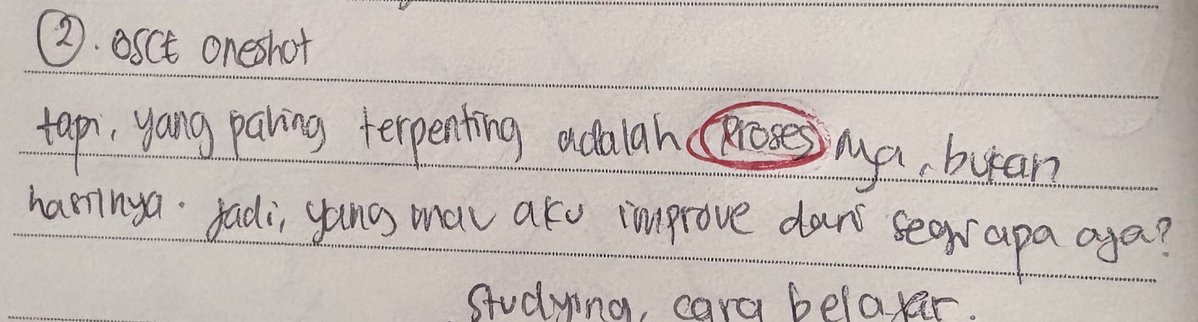 ②. OSCE oneshot
tapi, yang paling terpenting adalah Proses nya, bukan
hasilnya. jadi, yang mau aku improve dari segi apa aja?
studying, cara belajar.